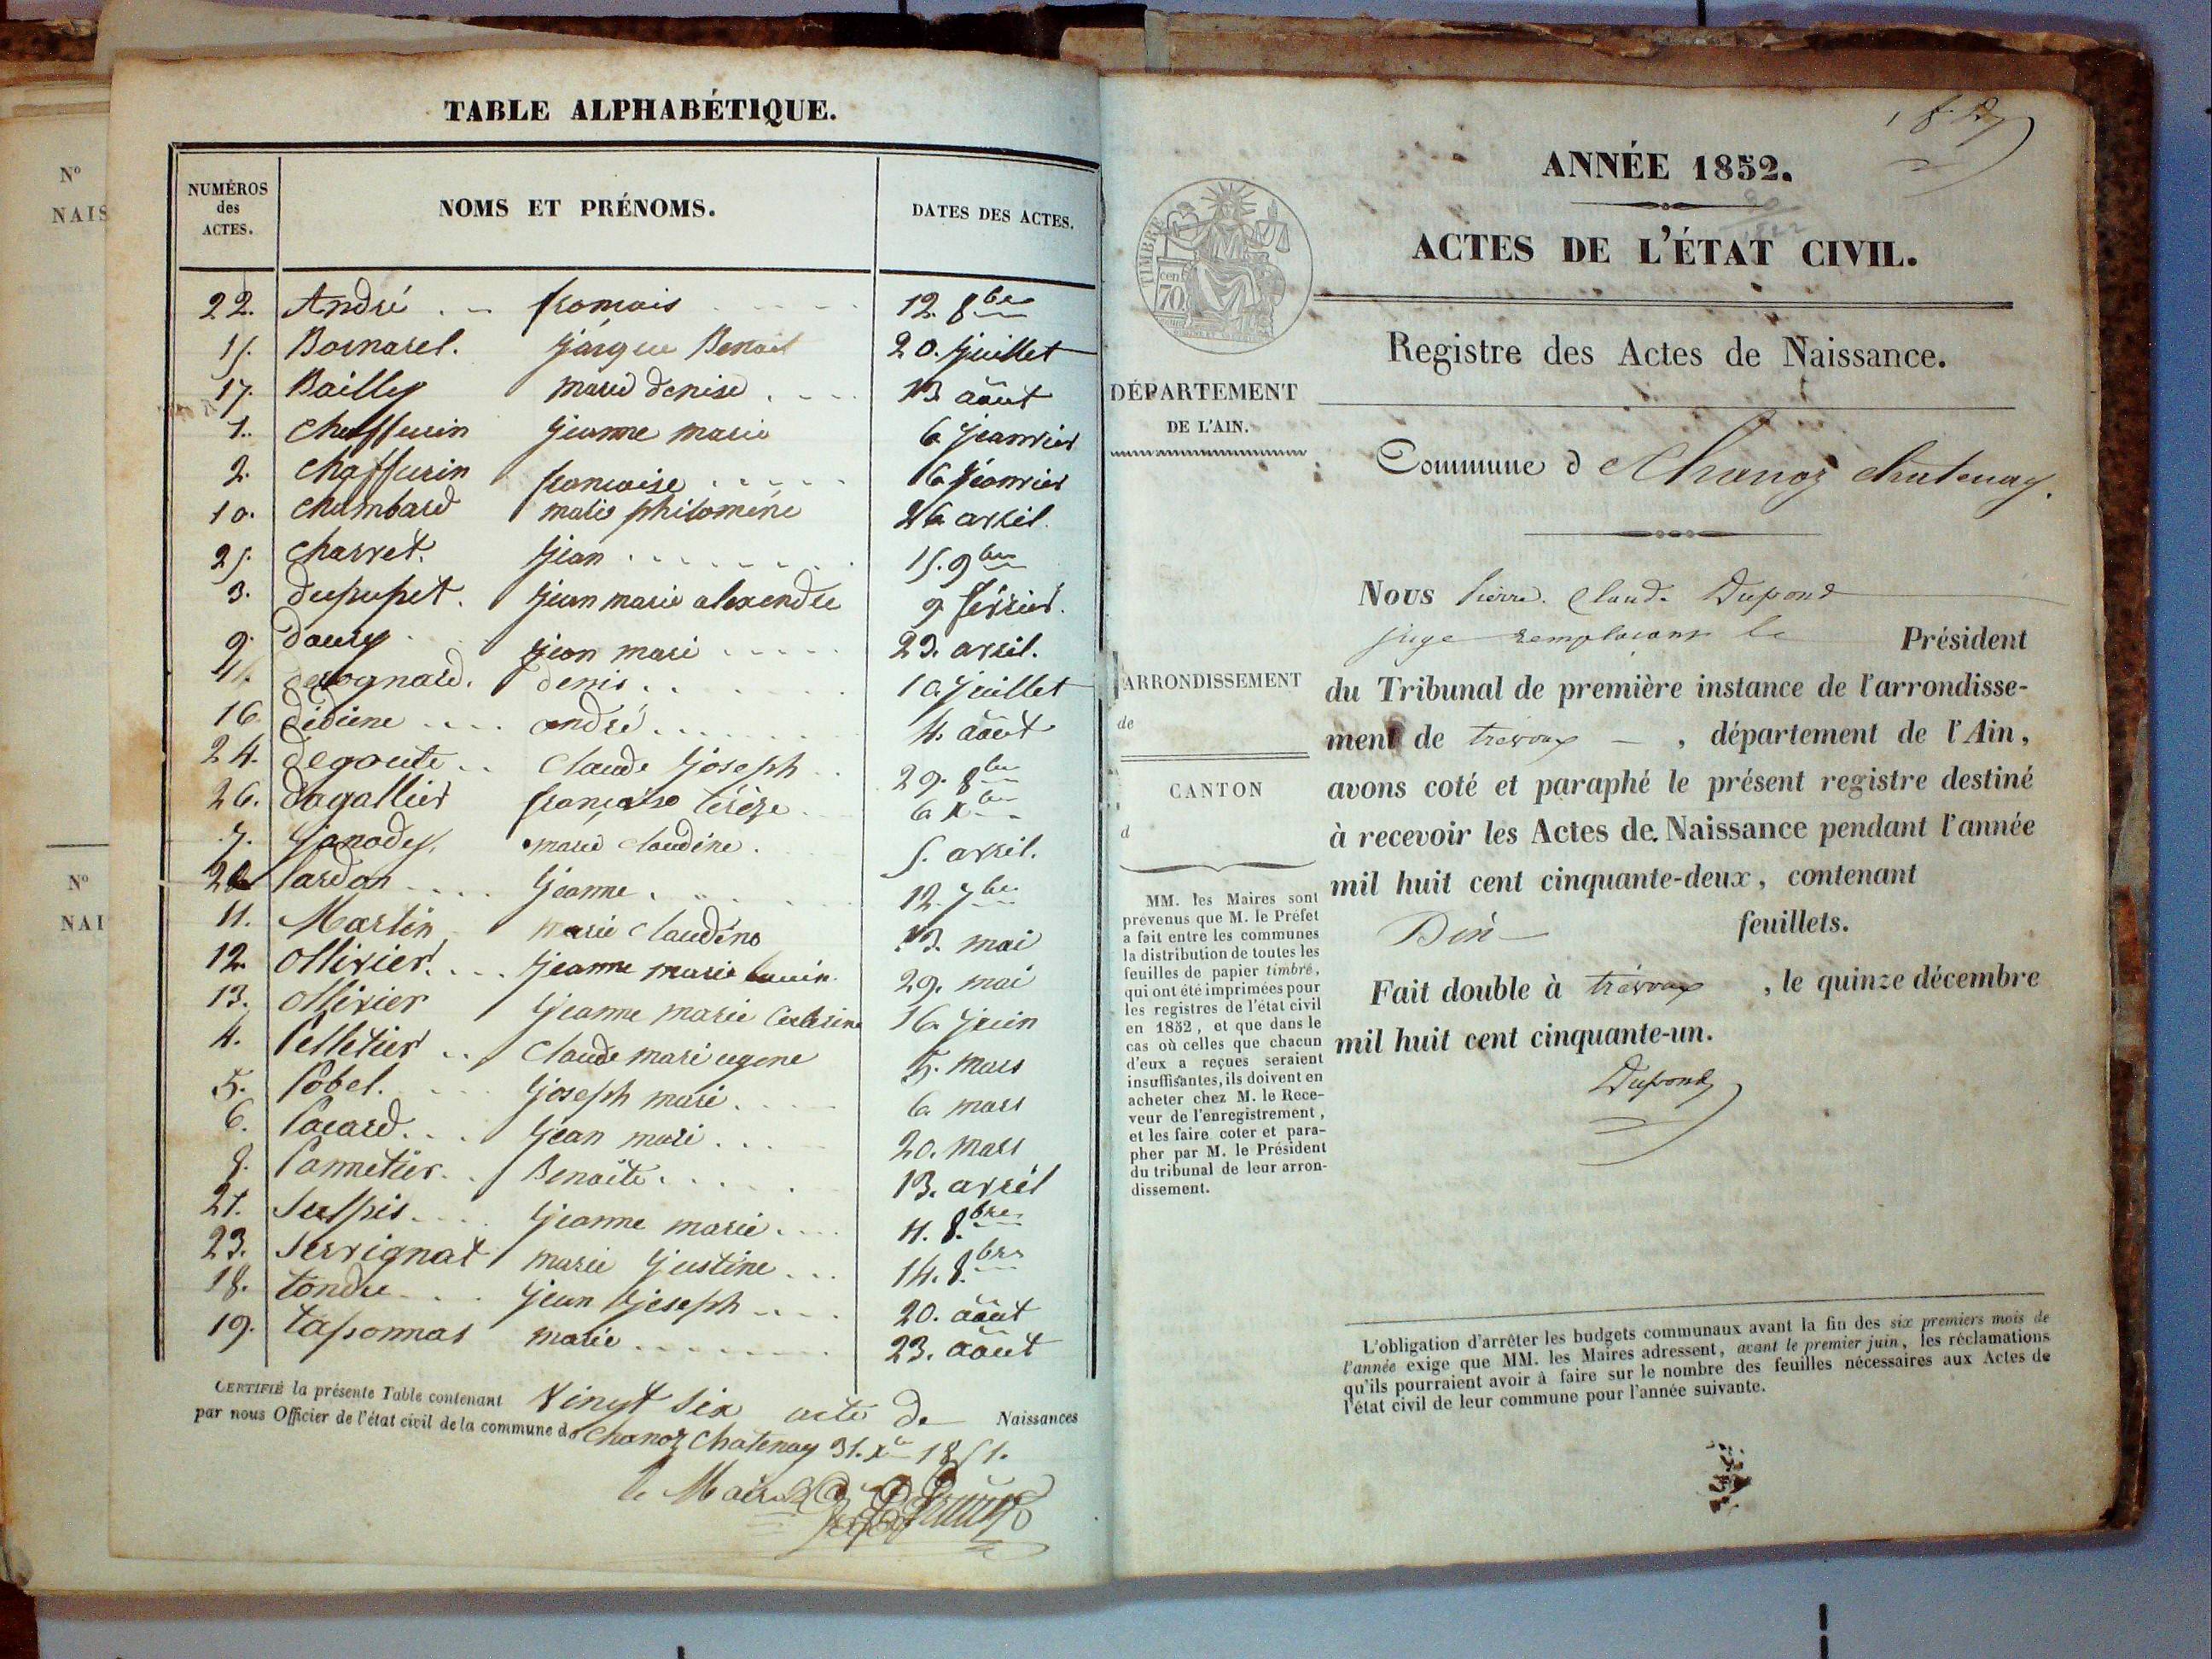 N°
NAIS
N°
NAI
TABLE ALPHABÉTIQUE.
NUMÉROS
des
ACTES.
NOMS ET PRÉNOMS.
DATES DES ACTES.
22. André françois 12. 8bre
15. Bornarel. jàrque Benoit 20. juillet
17. Bailly marie denise 13 août
1. Chaffurin jeanne marie 6 jeanvier
2. Chaffurin françoise 6 jeanvier
10. Chambard marie philomène 26 avril.
25. Charvet. jean 15. 9bre
3. dupupet. jean marie alexendre 9 févrie.
9. daury jean marie 23. avril.
14. denis 10 juillet
16. didiene andré 4. août
24. degoute claude joseph 29. 8bre
26. dagallier françoise térèze 6 Xbre
7. janodey. marie claudine. 5. avril.
20 lardon jeanne. 12. 7bre
11. Martin marie claudine 13. mai
12. Ollivier. jeanne marie 29. mai
13. ollivier jeanne marie 16 juin
4. Pelletier claude marie eugene 5. mars
5. Pobel. joseph marie. 6 mars
6. Pacard. jean marie 20. mars
8. Pannetier. Benoite. 13. avril
21. Sulpis jeanne marie. 4. 8bre
23. Servignat marie justine 14. 8bre
18. tondu jean joseph 20. août
19. taponnas marie 23. août
CERTIFIÉ la présente Table contenant vingt six acte de Naissances
par nous Officier de l'état civil de la commune de Chanoz Chatenay 31. Xbre 1851.
le Maire
ANNÉE 1852.
ACTES DE L'ÉTAT CIVIL.
Registre des Actes de Naissance.
Commune d Chanoz chatenay.
TIMBRE
70
cen
DÉPARTEMENT
DE L'AIN.
ARRONDISSEMENT
de
CANTON
d
MM. les Maires sont
prévenus que M. le Préfet
a fait entre les communes
la distribution de toutes les
feuilles de papier timbré,
qui ont été imprimées pour
les registres de l'état civil
en 1852, et que dans le
cas où celles que chacun
d'eux a reçues seraient
insuffisantes, ils doivent en
acheter chez M. le Rece-
veur de l'enregistrement,
et les faire coter et para-
pher par M. le Président
du tribunal de leur arron-
dissement.
Nous Pierre Claude Dupond
juge remplaçant le Président
du Tribunal de première instance de l'arrondisse-
ment de trévoux, département de l'Ain,
avons coté et paraphé le présent registre destiné
à recevoir les Actes de Naissance pendant l'année
mil huit cent cinquante-deux, contenant
feuillets.
Fait double à trévoux, le quinze décembre
mil huit cent cinquante-un.
Dupond
L'obligation d'arrêter les budgets communaux avant la fin des six premiers mois de
l'année exige que MM. les Maires adressent, avant le premier juin, les réclamations
qu'ils pourraient avoir à faire sur le nombre des feuilles nécessaires aux Actes de
l'état civil de leur commune pour l'année suivante.